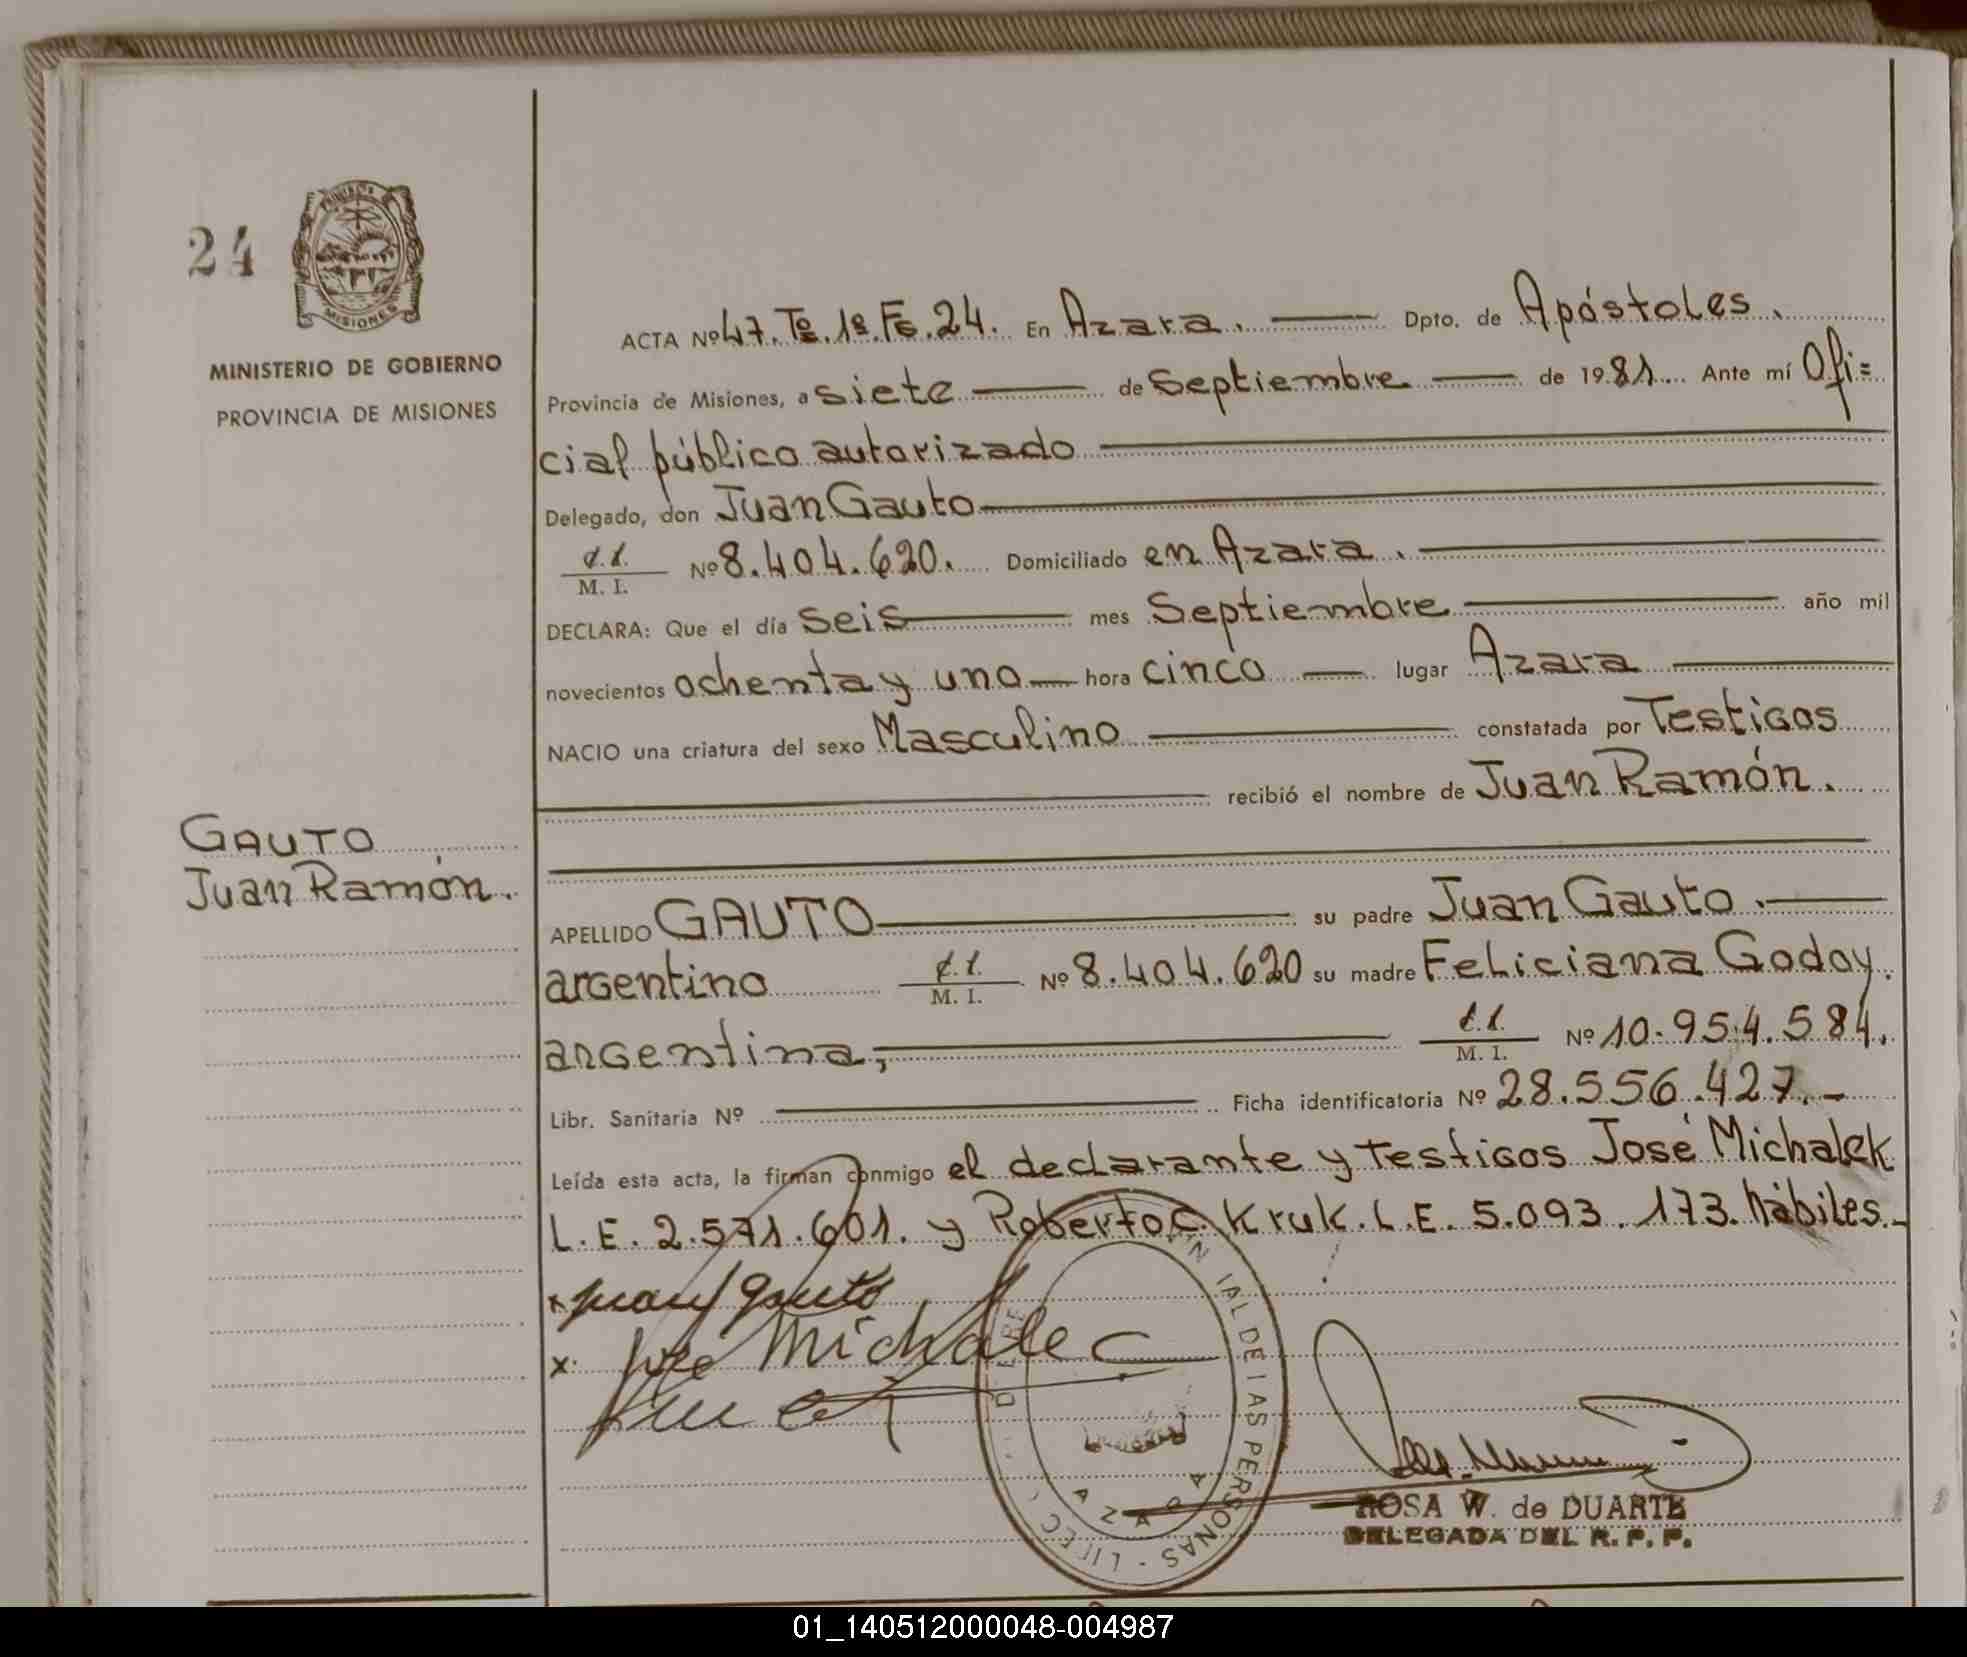 24
MISIONES
MINISTERIO DE GOBIERNO
PROVINCIA DE MISIONES
GAUTO
Juan Ramón.
ACTA Nº 47. Tº. 1º. Fº. 24. En Azara. Dpto. de Apóstoles.
Provincia de Misiones, a siete de Septiembre de 1981. Ante mí Ofi=
cial público autorizado
Delegado, don Juan Gauto
M. I. Nº 8.404.620. Domiciliado en Azara.
DECLARA: Que el día seis mes Septiembre año mil
novecientos ochenta y uno hora cinco lugar Azara
NACIO una criatura del sexo Masculino constatada por Testigos
recibió el nombre de Juan Ramón.
APELLIDO GAUTO su padre Juan Gauto.
argentino M. I. Nº 8.404.620 su madre Feliciana Godoy.
argentina, M. I. Nº 10.954.584.
Libr. Sanitaria Nº Ficha identificatoria Nº 28.556.427.-
Leída esta acta, la firman conmigo el declarante y testigos José Michalek
L.E. 2.571.601. y Roberto C. Kruk. L.E. 5.093.173. hábiles.-
x Juan Gauto
x José Michalec
DE LAS PERSONAS
AZARA
ROSA W. de DUARTE
DELEGADA DEL R. P. P.
01_140512000048-004987